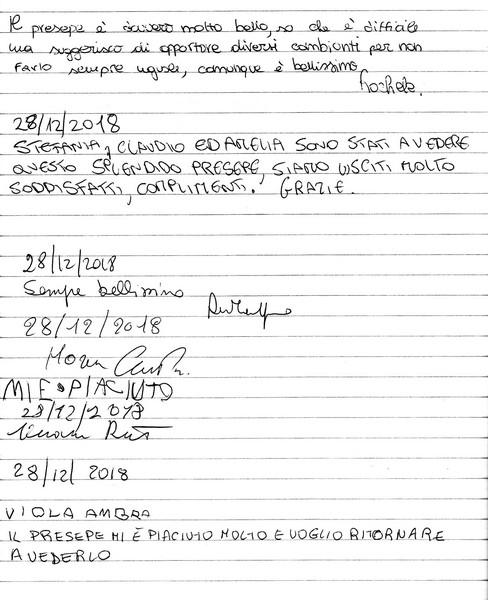 Il presepe è davvero molto bello, so che è difficile
ma suggerisco di apportare diversi cambianti per non
farlo sempre uguale, comunque è bellissimo.
28/12/2018
STEFANIA, CLAUDIO ED AMELIA SONO STATI A VEDERE
QUESTO SPLENDIDO PRESEPE, SIAMO USCITI MOLTO
SODDISFATTI, COMPLIMENTI. GRAZIE.
28/12/2018
Sempre bellissimo
28/12/2018
MI È PIACIUTO
28/12/2018
28/12/2018
VIOLA AMBRA
IL PRESEPE MI È PIACIUTO MOLTO E VOGLIO RITORNARE
A VEDERLO